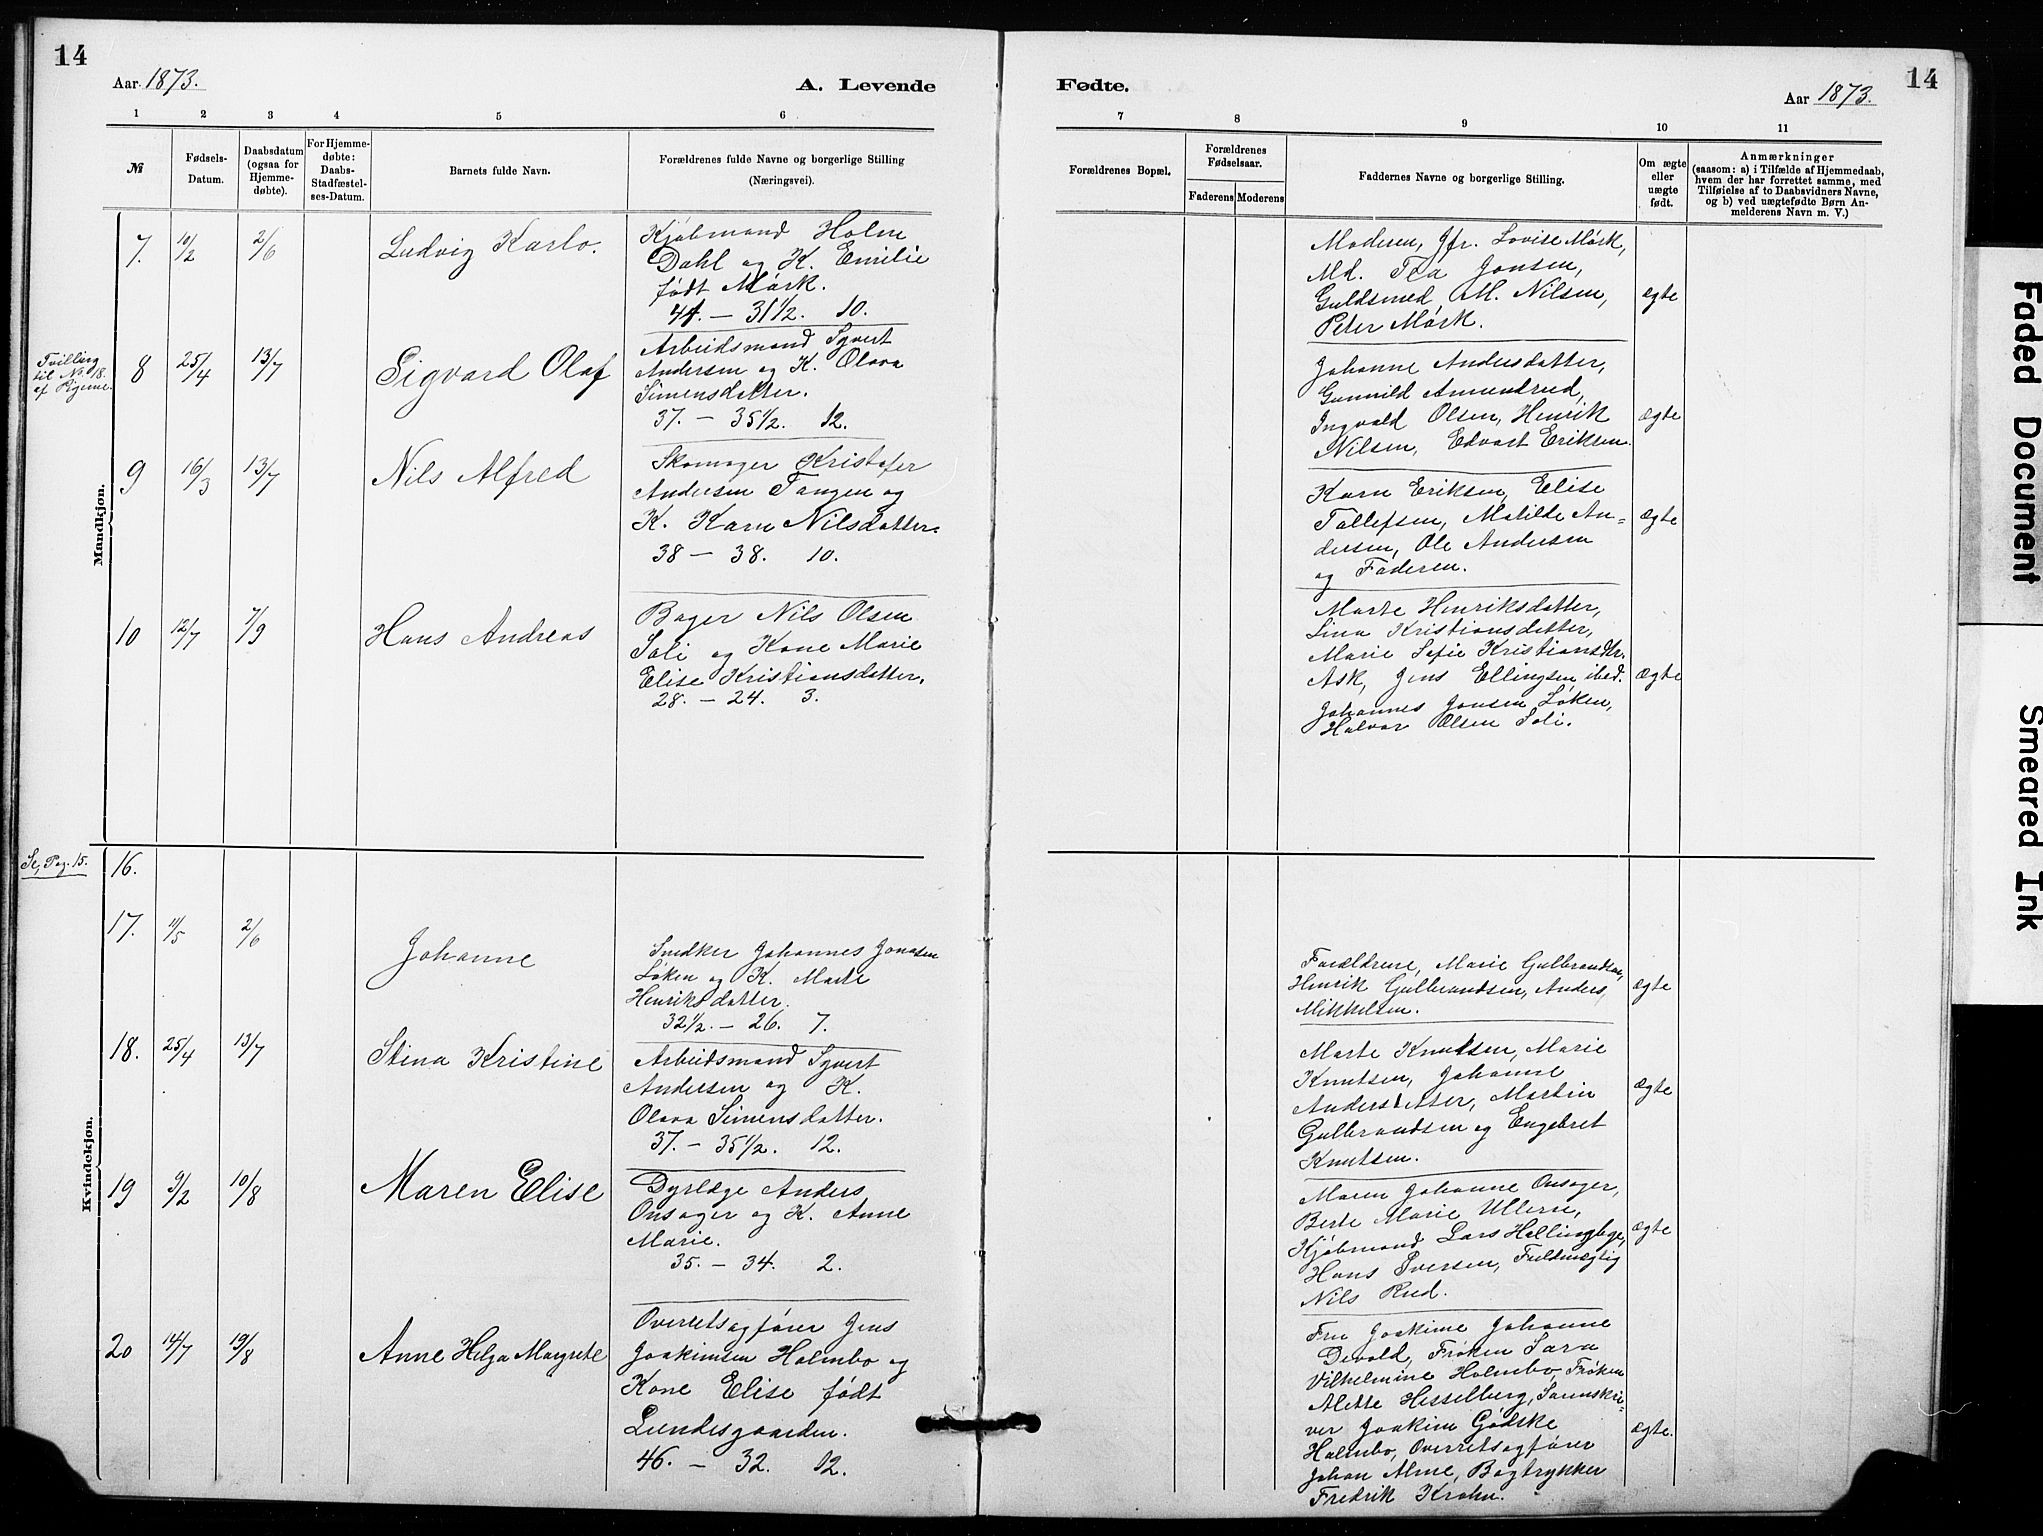 14
Aar 1873.
A. Levende
1 2 3 4 5 6
№
Fødsels-
Datum.
Daabsdatum
(ogsaa for
Hjemme-
døbte).
For Hjemme-
døbte:
Daabs-
Stadfæstel-
ses-Datum.
Barnets fulde Navn.
Forældrenes fulde Navne og borgerlige Stilling
(Næringsvei).
Mandkjøn.
7. 10/2 2/6 Ludvig Karlo.
Kjøbmand Holm
Dahl og K. Emilie
født Mørk.
44. — 31 1/2. 10.
Tvilling
til No. 18.
af Kjønne.
8 25/4 13/7 Sigvard Olaf
Arbeidsmand Syvert
Andersen og K. Olava
Simensdatter.
37. — 35 1/2. 12.
9 16/3 13/7 Nils Alfred
Skomager Kristofer
Andersen Tangen og
K. Karn Nilsdatter.
38 — 38. 10.
10 12/7 7/9 Hans Andreas
Bager Nils Olsen
Soli og Kone Marie
Elise Kristiansdatter.
28. — 24. 3.
Kvindekjøn.
Se, Pag. 15.
16.
17. 11/5 2/6 Johanne
Snedker Johannes Jonasen
Løken og K. Marte
Henriksdatter.
32 1/2. — 26. 7.
18. 25/4 13/7 Stina Kristine
Arbeidsmand Syvert
Andersen og K.
Olava Simensdatter.
37. — 35 1/2. 12.
19 9/2 10/8 Maren Elise
Dyrlæge Anders
Onsager og K. Anne
Marie.
35. — 34. 2.
20 14/7 19/8 Anne Helga Margrete
Overretsagfører Jens
Joakimsen Holmbo og
Kone Elise født
Lundesgaarden.
46. — 32. 12.
14
Fødte.
Aar 1873.
7 8 9 10 11
Forældrenes Bopæl.
Forældrenes
Fødselsaar.
Faderens Moderens
Faddernes Navne og borgerlige Stilling.
Om ægte
eller
uægte
født.
Anmærkninger
(saasom: a) i Tilfælde af Hjemmedaab,
hvem der har forrettet samme, med
Tilføielse af to Daabsvidners Navne,
og b) ved uægtefødte Børn An-
melderens Navn m. V.)
Moderen, Jfr. Lovise Mørk,
Md. Tea Jonsen,
Guldsmed M. Nilsen, ægte
Peter Mørk.
Johanne Andersdatter,
Gunnild Amundrud,
Ingvald Olsen, Henrik ægte
Nilsen, Edvart Eriksen.
Karn Eriksen, Elise
Tollefsen, Matilde An= ægte
dersen, Ole Andersen
og Faderen.
Marte Henriksdatter,
Lina Kristiansdatter,
Marie Sofie Kristiansdtr.
Ask, Jens Ellingsen ibed. ægte
Johannes Jonsen Løken,
Halvor Olsen Soli.
Forældrene, Marie Gulbrandsen,
Henrik Gulbrandsen, Anders ægte
Mikkelsen.
Marte Knutsen, Marie
Knutsen, Johanne
Andersdatter, Martin ægte
Gulbrandsen og Engebret
Knutsen.
Maren Johanne Onsager,
Berte Marie Ullern,
Kjøbmand Lars Hellingberge, ægte
Hans Iversen, Fuldmægtig
Nils Rud.
Fru Joakime Johanne
Devold, Frøken Sara
Vilhelmine Holmbo, Frøken
Alette Hesselberg, Sorenskri-
ver Joakim Gødske ægte.
Holmbo, Overretsagfører
Johan Alme, Bogtrykker
Fredrik Krohn.
Faded Document
Smeared Ink